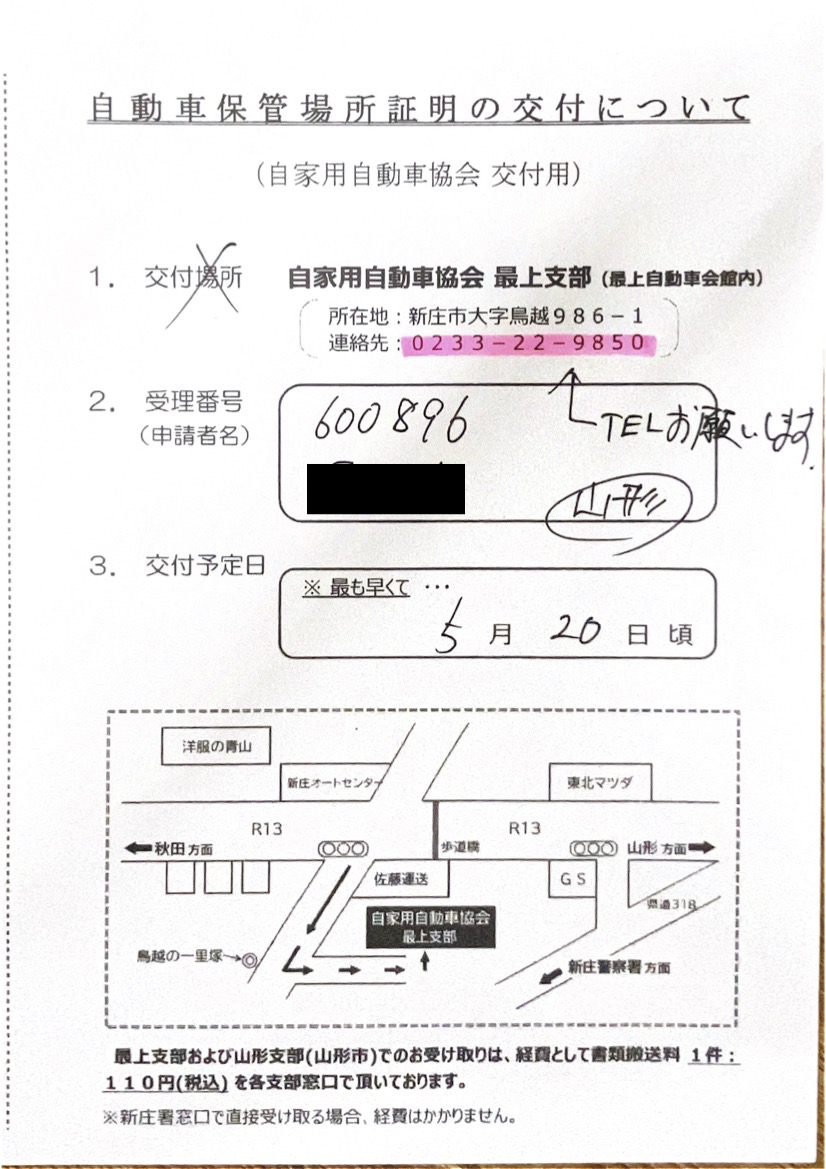 自動車保管場所証明の交付について
(自家用自動車協会 交付用)
1. 交付場所 自家用自動車協会 最上支部 (最上自動車会館内)
所在地:新庄市大字鳥越986-1
連絡先:0233-22-9850
2. 受理番号
(申請者名)
600896
TELお願いします.
山形
3. 交付予定日
※ 最も早くて …
5 月 20 日 頃
洋服の青山
新庄オートセンター
東北マツダ
R13
R13
秋田方面
歩道橋
山形方面
佐藤運送
GS
県道318
自家用自動車協会
最上支部
鳥越の一里塚
新庄警察署方面
最上支部および山形支部(山形市)でのお受け取りは、経費として書類搬送料 1件:
110円(税込) を各支部窓口で頂いております。
※新庄署窓口で直接受け取る場合、経費はかかりません。